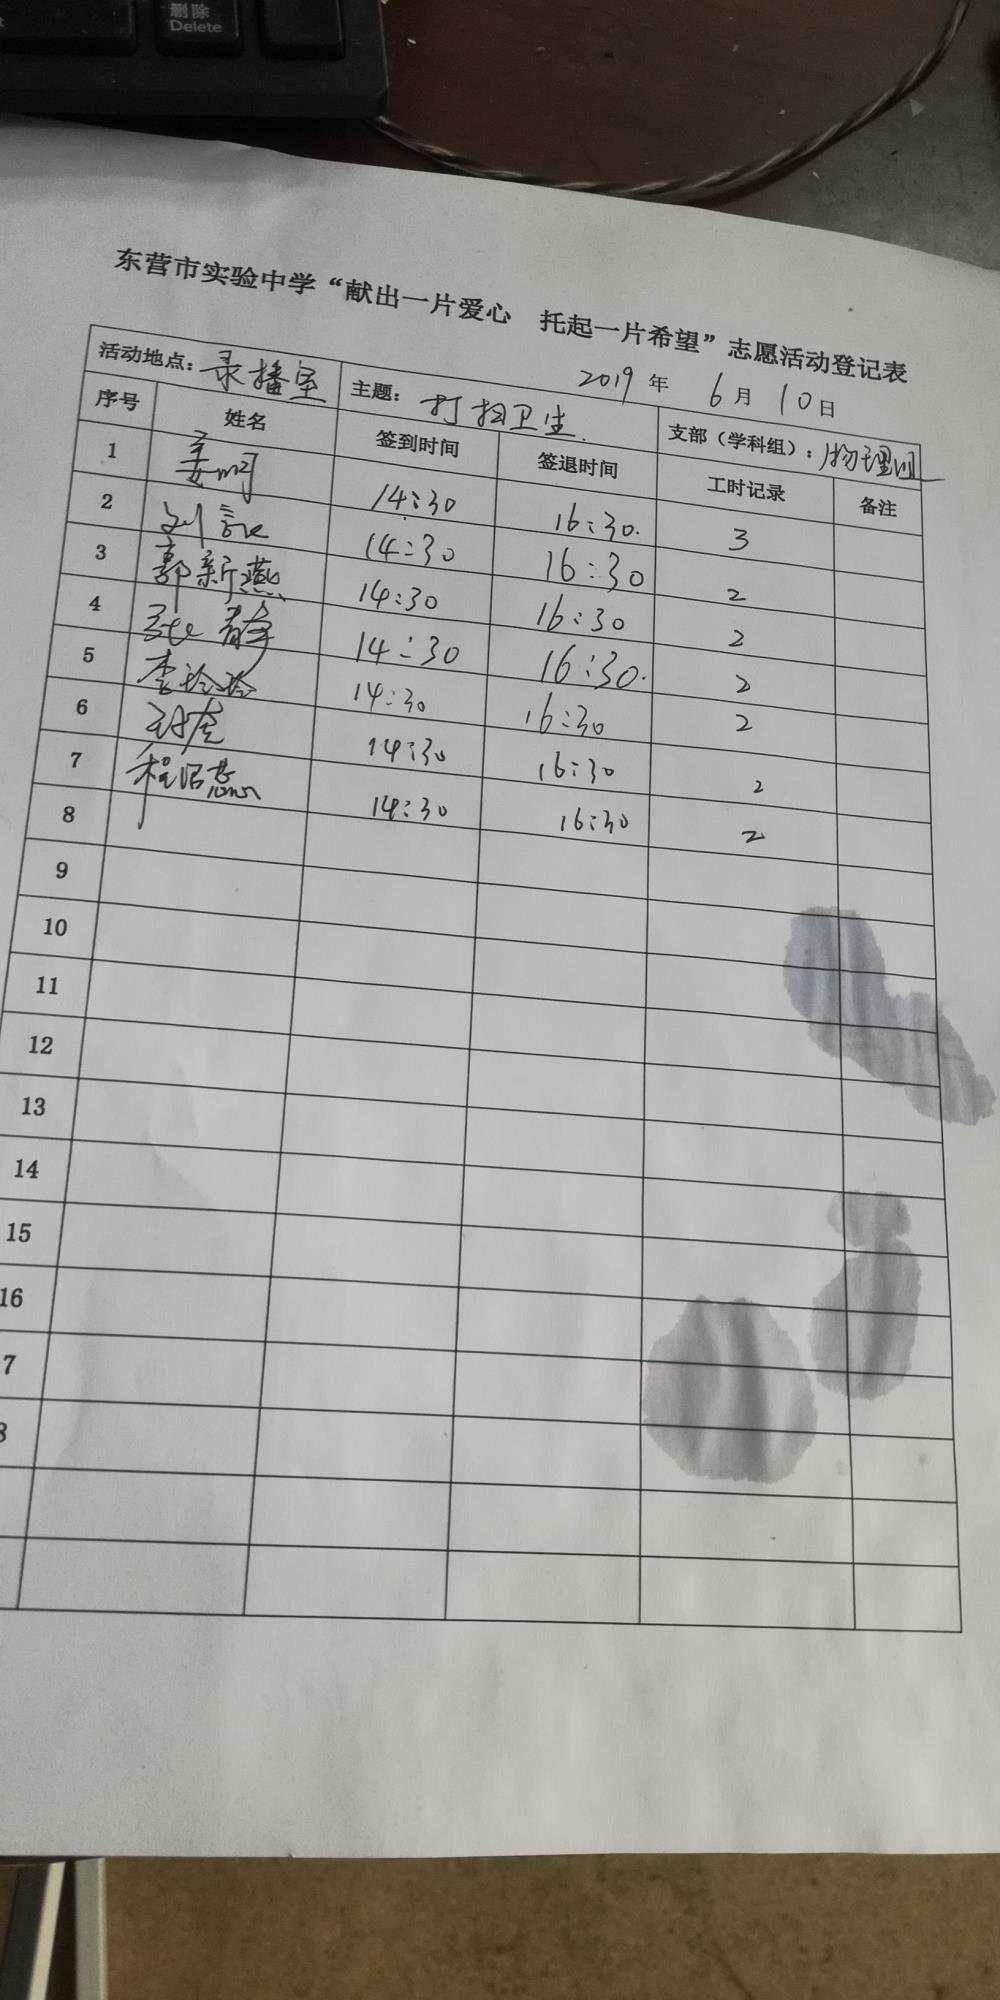 删除
Delete
东营市实验中学“献出一片爱心 托起一片希望”志愿活动登记表
2019 年 6 月 10 日
活动地点：录播室 主题：打扫卫生. 支部（学科组）：物理组
序号 姓名 签到时间 签退时间 工时记录 备注
1 14:30 16:30. 3
2 刘 14:30 16:30 2
3 郭新燕 14:30 16:30 2
4 张静 14:30 16:30. 2
5 李玲玲 14:30 16:30 2
6 14:30 16:30 2
7 程 14:30 16:30 2
8
9
10
11
12
13
14
15
16
7
8